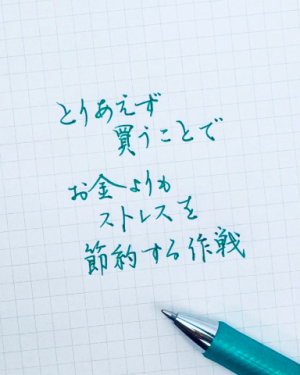 とりあえず
買うことで
お金よりも
ストレスを
節約する作戦